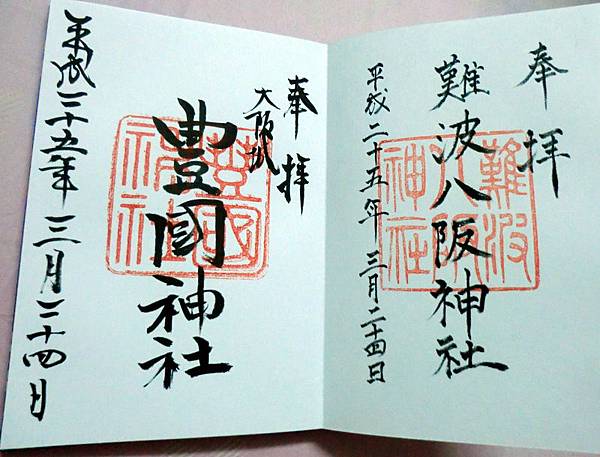 奉拝
難波八阪神社
難波八阪神社
平成二十五年三月二十四日
奉拝
大阪城
豊國神社
平成二十五年三月二十四日